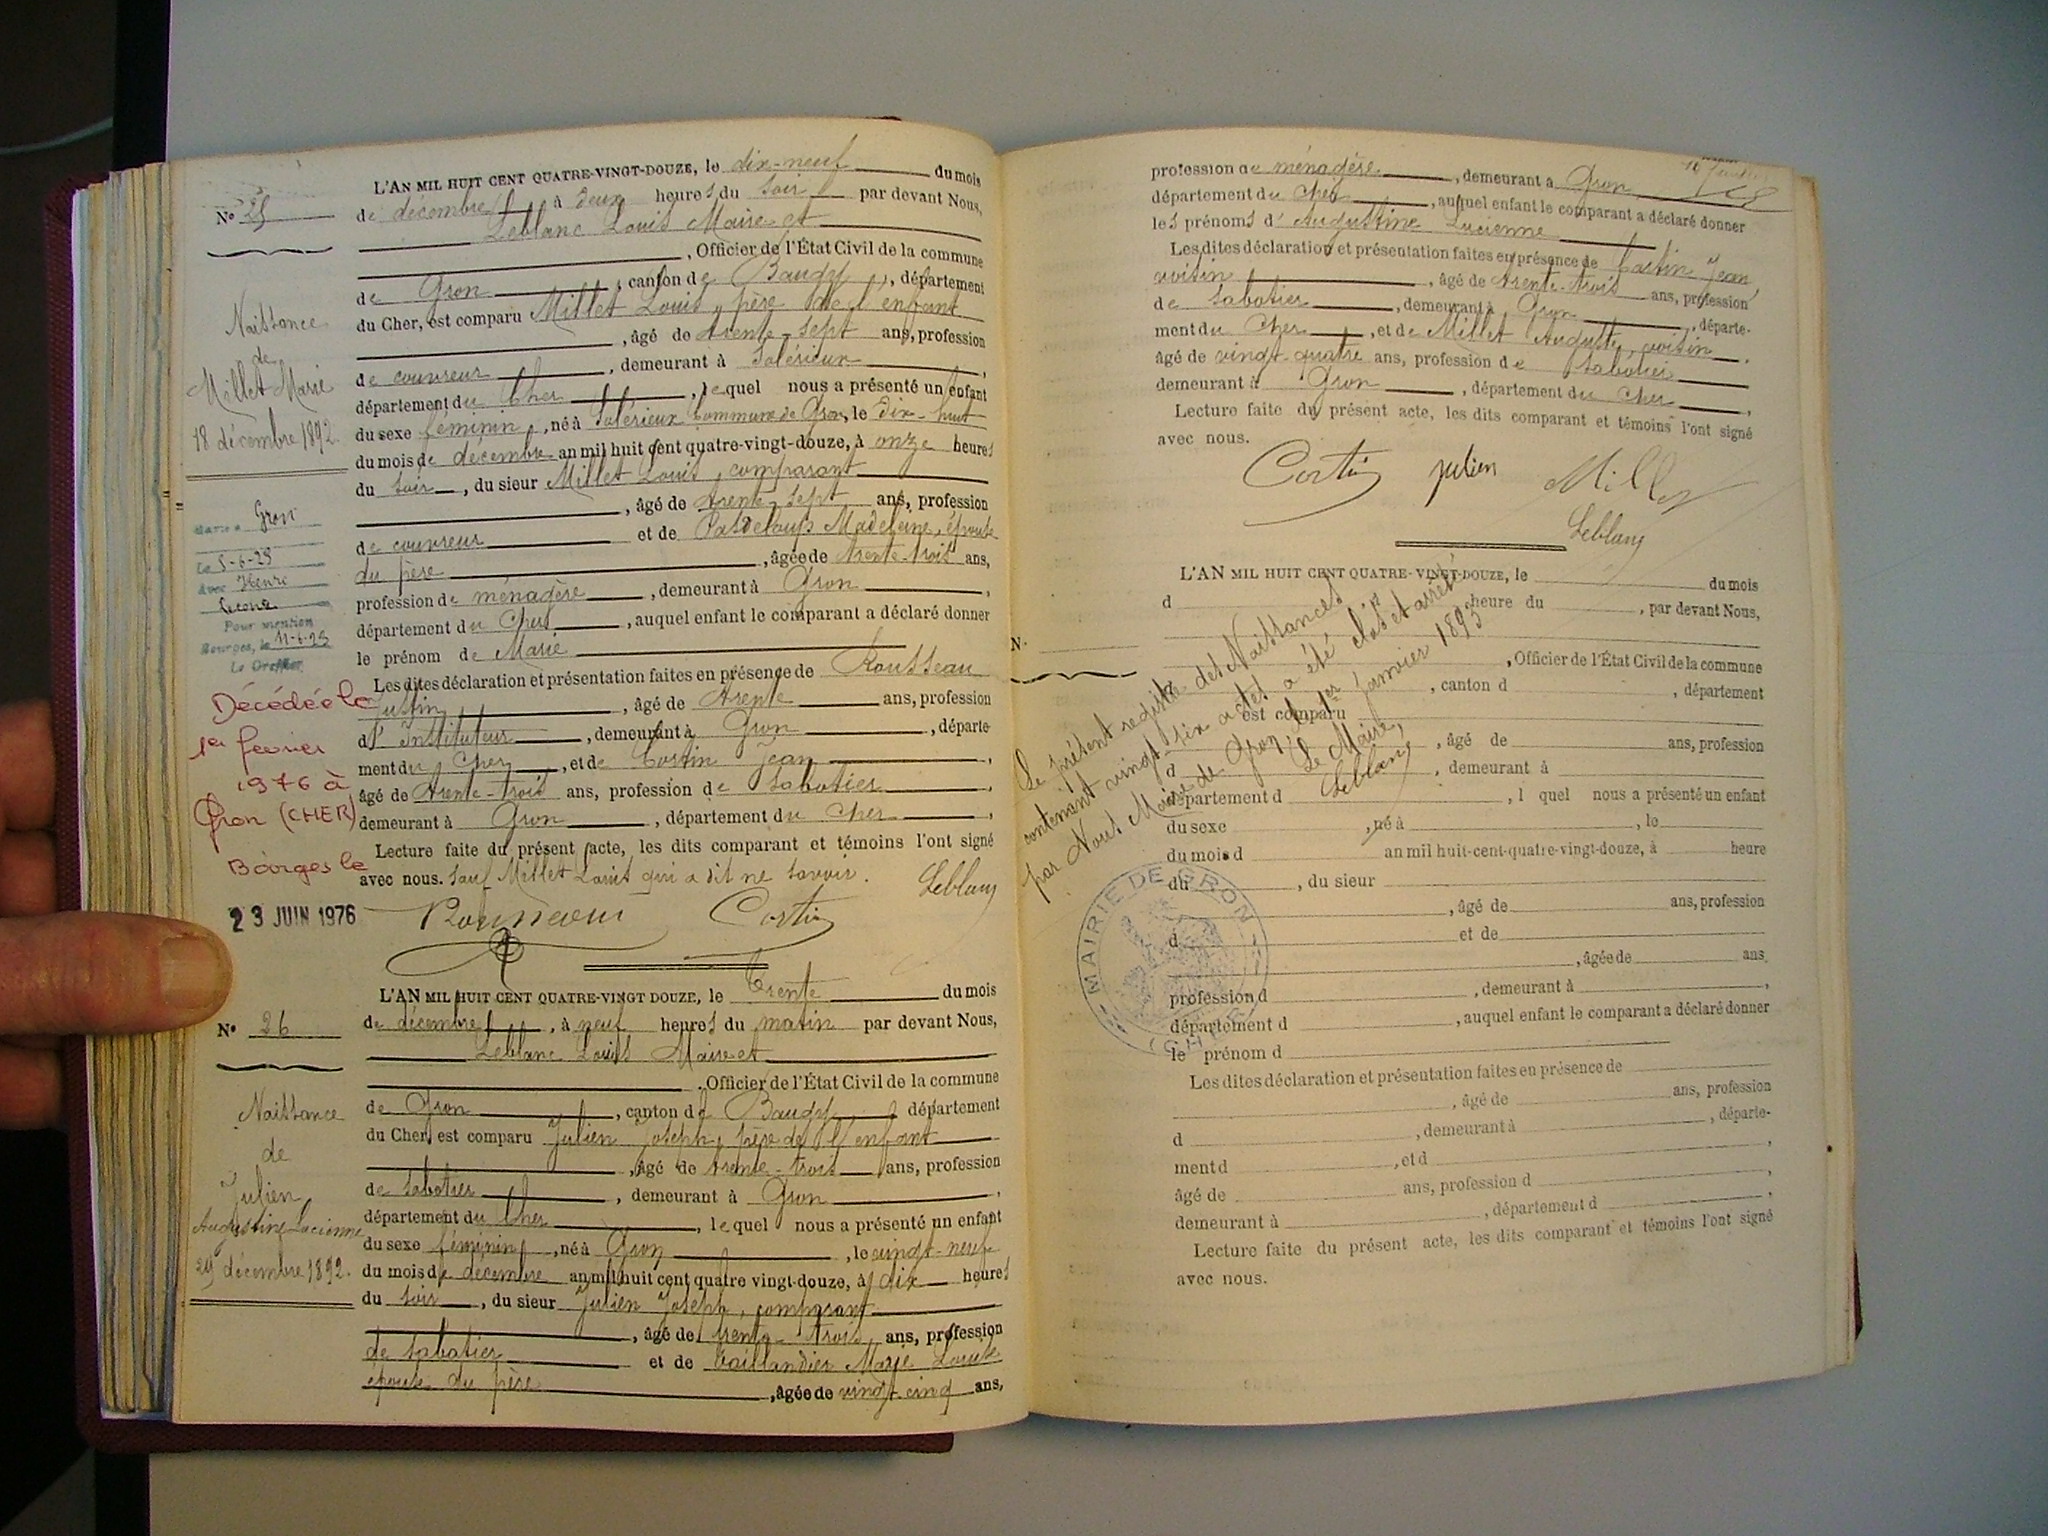 L'AN MIL HUIT CENT QUATRE-VINGT-DOUZE, le dix-neuf du mois
N° 25
de décembre, à deux heures du soir par devant Nous,
Leblanc Louis Maire et
, Officier de l'État Civil de la commune
de Gron, canton de Baugy, département
du Cher, est comparu Millet Louis, père de l'enfant
, âgé de trente-sept ans, profession
de couvreur, demeurant à Salérieux,
département du Cher, lequel nous a présenté un enfant
du sexe féminin, né à Salérieux Commune de Gron, le dix-huit
du mois de décembre an mil huit cent quatre-vingt-douze, à onze heures
du soir, du sieur Millet Louis, comparant
, âgé de trente-sept ans, profession
de couvreur et de Pasdeloup Madeleine, épouse
du père, âgée de trente-trois ans,
profession de ménagère, demeurant à Gron,
département du Cher, auquel enfant le comparant a déclaré donner
le prénom de Marie
Les dites déclaration et présentation faites en présence de Rousseau
Justin, âgé de trente ans, profession
d'Instituteur, demeurant à Gron, départe-
ment du Cher, et de Cortin Jean,
âgé de trente-trois ans, profession de sabotier
demeurant à Gron, département du Cher,
Lecture faite du présent acte, les dits comparant et témoins l'ont signé
avec nous. sauf Millet Louis qui a dit ne savoir.
Leblanc
Rousseau Cortin
Naissance
de
Millet Marie
18 décembre 1892.
Marié à Gron
Le 5-6-23
Avec Henri
Pour mention
Bourges, le 11-6-23
Le Greffier
Décédée le
1er février
1976 à
Gron (CHER)
Bourges le
23 JUIN 1976
L'AN MIL HUIT CENT QUATRE-VINGT DOUZE, le trente du mois
N° 26
de décembre, à neuf heures du matin par devant Nous,
Leblanc Louis Maire et
, Officier de l'État Civil de la commune
de Gron, canton de Baugy, département
du Cher, est comparu Julien Joseph, père de l'enfant
, âgé de trente-trois ans, profession
de sabotier, demeurant à Gron,
département du Cher, lequel nous a présenté un enfant
du sexe féminin, né à Gron, le vingt-neuf
du mois de décembre an mil huit cent quatre vingt-douze, à dix heures
du soir, du sieur Julien Joseph, comparant
, âgé de trente-trois ans, profession
de sabotier et de Taillandier Marie Louise
épouse du père, âgée de vingt cinq ans,
Naissance
de
Julien
Augustine Lucienne
29 décembre 1892.
profession de ménagère, demeurant à Gron
département du Cher, auquel enfant le comparant a déclaré donner
les prénoms d'Augustine Lucienne
Les dites déclaration et présentation faites en présence de Cortin Jean,
voisin, âgé de trente-trois ans, profession
de sabotier, demeurant à Gron, départe-
ment du Cher, et de Millet Auguste, voisin.
âgé de vingt quatre ans, profession de sabotier
demeurant à Gron, département du Cher,
Lecture faite du présent acte, les dits comparant et témoins l'ont signé
avec nous.
Cortin Julien Millet
Leblanc
L'AN MIL HUIT CENT QUATRE-VINGT-DOUZE, le du mois
d heure du , par devant Nous,
N°
, Officier de l'État Civil de la commune
, canton d , département
est comparu
, âgé de ans, profession
d , demeurant à
département d , l quel nous a présenté un enfant
du sexe , né à , le
du mois d an mil huit-cent-quatre-vingt-douze, à heure
du , du sieur
, âgé de ans, profession
d et de
, âgée de ans
profession d , demeurant à ,
département d , auquel enfant le comparant a déclaré donner
le prénom d
Les dites déclaration et présentation faites en présence de
, âgé de ans, profession
d , demeurant à , départe-
ment d , et d ,
âgé de ans, profession d ,
demeurant à , département d ,
Lecture faite du présent acte, les dits comparant et témoins l'ont signé
avec nous.
Le présent registre des Naissances
contenant vingt-six actes a été clos et arrêté
par Nous Maire de Gron, le 1er Janvier 1893
Le Maire,
Leblanc
MAIRIE DE GRON
(CHER)